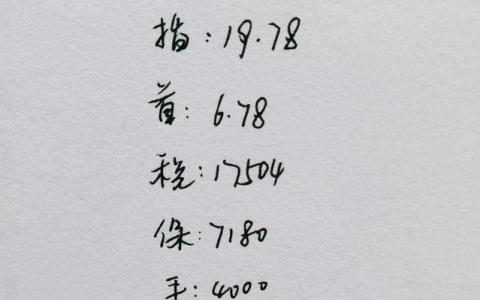 指：19.78
首：6.78
税：17504
保：7180
手：4000